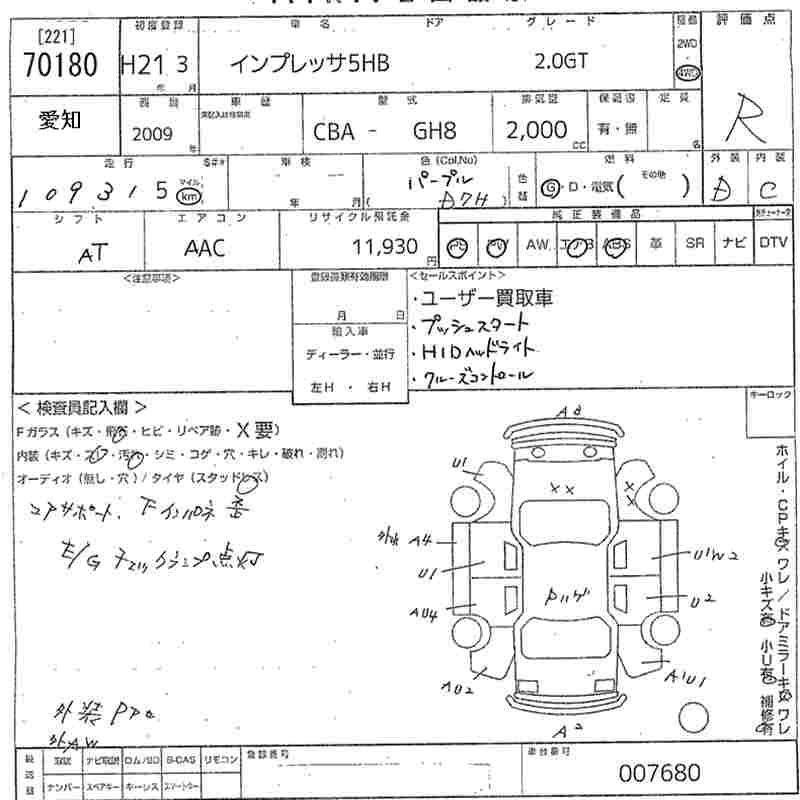 [221] 初度登録 車名 ドア グレード 評価点
70180 H21 3 インプレッサ5HB 2.0GT 2WD 4WD
年 月
愛知 2009 年 車歴 型式 排気量 定員 R
CBA - GH8 2,000 CC 有・無 名
走行 車検 色(Col,No) 燃料 外装 内装
109315 マイル km 年 月 パープル D7H 色替 G・D・電気( その他 ) D C
シフト エアコン リサイクル預託金 純正装備品
AT AAC 11,930 円 PS PW AW エアB ABS 革 SR ナビ DTV
<注意事項> <セールスポイント>
月 日 ・ユーザー買取車
輸入車 ・プッシュスタート
ディーラー・並行 ・HIDヘッドライト
左H ・ 右H ・クルーズコントロール
キーロック
<検査員記入欄>
Fガラス(キズ・飛石・ヒビ・リペア跡・X要)
内装(キズ・スレ・汚れ・シミ・コゲ・穴・キレ・破れ・割れ)
オーディオ(無し・穴)/タイヤ(スタッドレス)
コアサポート、Fインパネ
E/G チェックランプ点灯
外装
A2
U1
XX
XX
A4
U1W2
U1
AU4
U2
AU2
A1U1
A2
ホイル・CPキズ ワレ/ドアミラーキズ ワレ
小キズ有 小U有 補修有
ナビ取説 ロム/SD B-CAS リモコン 登録番号 車台番号
ナンバー スペアキー キーレス スマートキー 007680